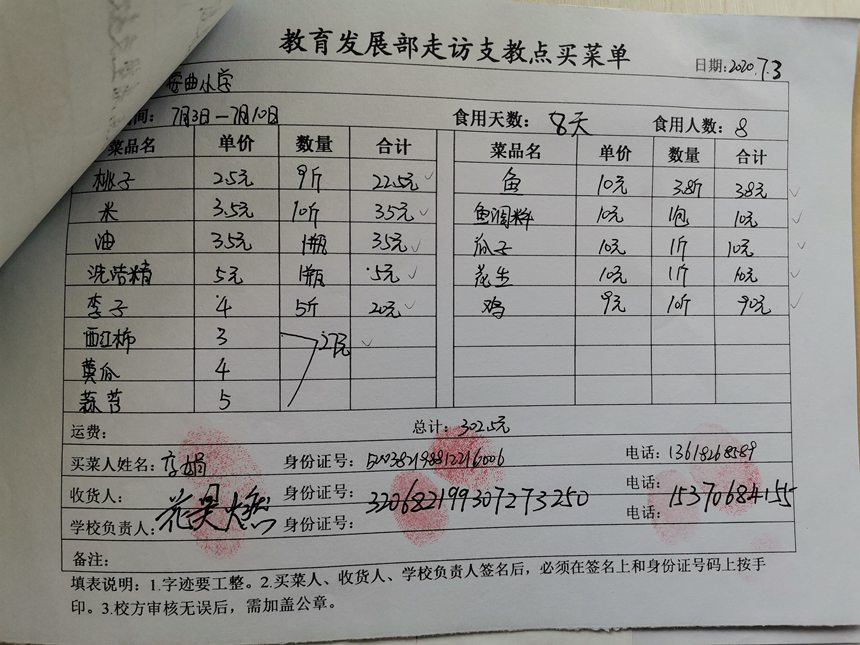 教育发展部走访支教点买菜单
日期:2020.7.3
安曲小学
间: 7月3日—7月10日 食用天数: 8天 食用人数: 8
菜品名 单价 数量 合计 菜品名 单价 数量 合计
桃子 2.5元 9斤 22.5元 鱼 10元 3.8斤 38元
米 3.5元 10斤 35元 鱼调料 10元 1包 10元
油 35元 1瓶 35元 瓜子 10元 1斤 10元
洗洁精 5元 1瓶 5元 花生 10元 1斤 10元
李子 4 5斤 20元 鸡 9元 10斤 90元
西红柿 3 27元
黄瓜 4
蒜苔 5
运费: 总计: 302.5元
买菜人姓名: 李娟 身份证号: 500382198812216006 电话: 13618268589
收货人: 身份证号: 320682199307273250 电话: 15370684155
学校负责人: 花昊燃 身份证号: 电话:
备注:
填表说明: 1.字迹要工整。2.买菜人、收货人、学校负责人签名后，必须在签名上和身份证号码上按手
印。3.校方审核无误后，需加盖公章。